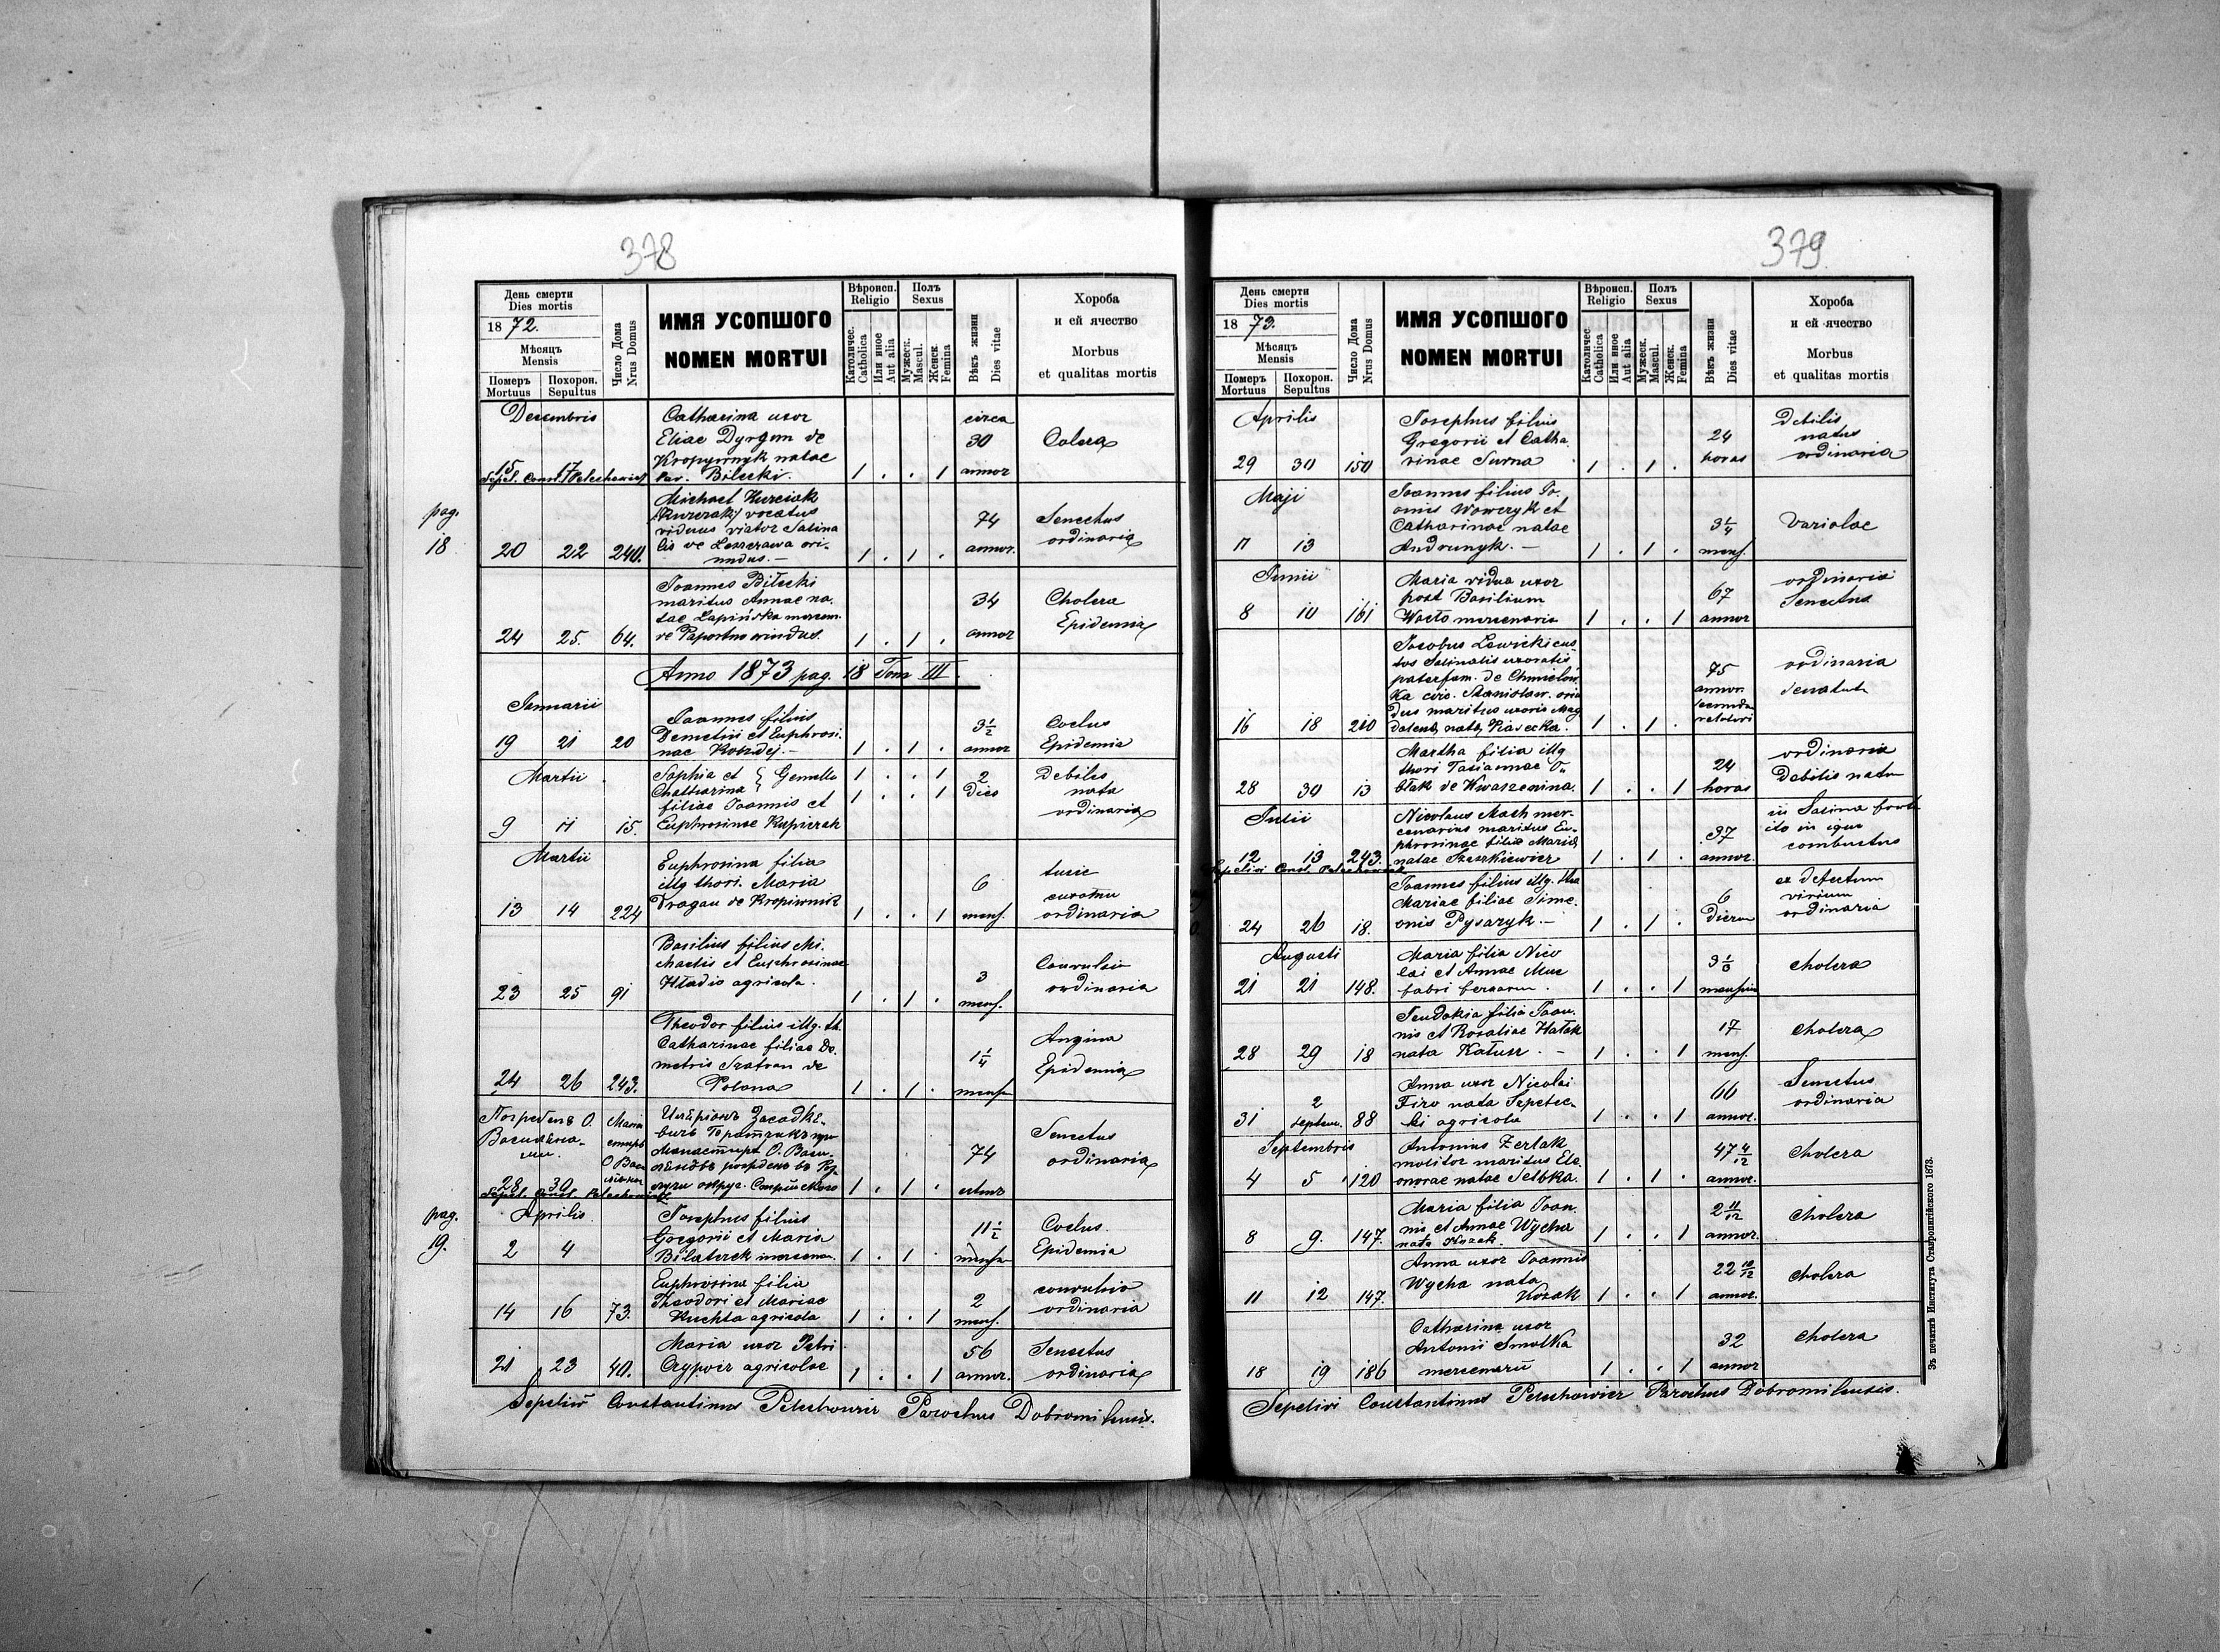 378
День смерти
Dies mortis
1872.
Мѣсяцъ
Mensis
Померъ Mortuus
Похорон. Sepultus
Число Дома
Nrus Domus
ИМЯ УСОПШОГО
NOMEN MORTUI
Вѣроисп.
Religio
Католичес.
Catholica
Или иное
Aut alia
Полъ
Sexus
Мужеск.
Mascul.
Женск.
Femina
Вѣкъ жизни
Dies vitae
Хороба
и ей ячество
Morbus
et qualitas mortis
Decembris
Catharina uxor
Eliae Dyrgun de
Kropywnyk natae
Bilecki.
15 17
1 . . 1
circa
30
annor
Colera
pag.
18
20 22 240.
Michael Kurciak
vocatus
viduus viator Salina
lis de Leszczawa ori-
undus.
1 . 1 .
74
annor.
Senectus
ordinaria
24 25. 64.
Joannes Bilecki
maritus Annae na-
tae Lapińska
de Paportno oriundus.
1 . 1 .
34
annor
Cholera
Epidemia
Anno 1873 pag. 18 Tom III
Januarii
19 21 20
Joannes filius
Demetrii et Euphrosi-
nae Koszdej.-
1 . 1 .
3 1/2
annor
Epidemia
Martii
9 11 15.
Sophia et } Gemelle
Chatharina
filiae Joannis et
Euphrosinae Kupiczak
1 . . 1
1 . . 1
2
dies
debiles
nata
ordinaria
Martii
13 14 224
Euphrosina filia
illg thori. Maria
Dragan de Kropiwnik
1 . . 1
6
mens.
ordinaria
23 25 91
Basilius filius Mi-
chaelis et Euphrosinae
Hladio agricola.
1 . 1 .
3
mens.
Convulsio
ordinaria
24 26 243.
Theodor filius illg. th.
Catharinae filiae De-
metris Szatran de
Polana
1 . 1 .
1 1/4
Angina
Epidemia
28 30
1 . 1 .
74
Senectus
ordinaria
pag.
19.
Aprilis
2 4
Josephus filius
Gregorii et Maria
1 . 1 .
11 1/2
Epidemia
14 16 73.
Euphrosina filia
Theodori et Mariae
Kuchta agricola
1 . . 1
2
mens.
convulsio
ordinaria
21 23 40.
Maria uxor Petri
agricolae
1 . . 1
56
annor.
Senectus
ordinaria
Sepelivi Constantinus Petechowicz Parochus Dobromilensis.
379
День смерти
Dies mortis
1873.
Мѣсяцъ
Mensis
Померъ Mortuus
Похорон. Sepultus
Число Дома
Nrus Domus
ИМЯ УСОПШОГО
NOMEN MORTUI
Вѣроисп.
Religio
Католичес
Catholica
Или иное
Aut alia
Полъ
Sexus
Мужеск.
Mascul.
Женск.
Femina
Вѣкъ жизни
Dies vitae
Хороба
и ей ячество
Morbus
et qualitas mortis
Aprilis
29 30 150
Josephus filius
Gregorii et Catha-
rinae Surna
1 . 1 .
24
horas
Debilis
natus
ordinaria
Maji
11 13
Joannes filius Jo-
annis Wowczyk et
Catharinae natae
Andrunyk.-
1 . 1 .
3 1/4
mens.
Variolae
Junii
8 10 161
Maria vidua uxor
post Basilium
Wosto mercenaria
1 . . 1
67
annor
ordinaria
Senectus
16 18 210
Jacobus Lewicki cus-
tos Salinalis uxoratus
paterfam. de Chmielow-
ka circ. Stanislaw. oriun
dus maritus uxoris Mag
1 . 1 .
75
annor.
ordinaria
28 30 13
Martha filia illg
thori Tatiannae
de Kwaszenina.
1 . . 1
24
horas
ordinaria
Debilis nata
Julii
12 13 243.
Nicolaus Mach mer-
cenarius maritus Eu-
phrosinae filiae Maria
natae Szczrkiewicz
1 . 1 .
37
annor.
in Salina
in igne
combustus
24 26 18.
Joannes filius illg. tho
Mariae filiae Sime-
onis Pysaryk.-
1 . 1 .
6
dierum
ex defectum
virium
ordinaria
Augusti
21 21 148.
Maria filia Nico
lai et Annae Muc
fabri ferrarii.
1 . . 1
cholera
28 29 18
Eudokia filia Joan-
nis et Rosaliae Hatak
nata Katusz.-
1 . . 1
17
mens.
cholera
31 2 septem. 88
Anna uxor Nicolai
Firo nata Sepetec-
ki agricola
1 . . 1
66
annor.
Senectus
ordinaria
Septembris
4 5 120
Antonius Zerlak
molitor maritus Ele-
onorae natae Setbka.
1 . 1 .
47 4/12
annor.
cholera
8 9. 147.
Maria filia Joan-
nis et Annae Wycha
nata Kozak.
1 . . 1
2 11/12
annor.
cholera
11 12 147.
Anna uxor Joannis
Wycha nata
Kozak
1 . . 1
22 10/12
annor.
cholera
18 19 186
Catharina uxor
Antonii Smolka
mercenarii
1 . . 1
32
annor
cholera
Sepelivi Constantinus Petechowicz Parochus Dobromilensis.
Зъ печатнѣ Института Ставропигійского 1873.